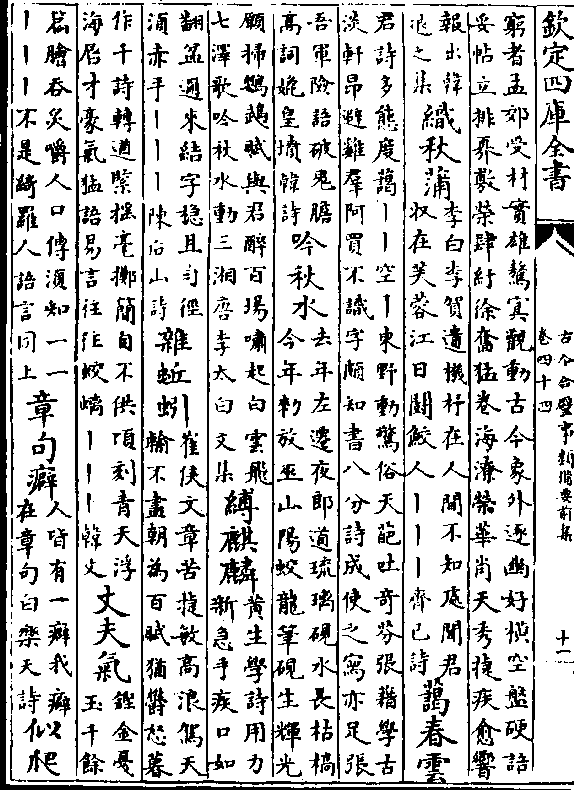 欽定四庫全書
古今合璧事類備要前集
卷四十四
十一
窮者孟郊受材實雄驁冥觀動古今象外逐幽好橫空盤硬語
妥帖立排奡敷榮肆紆徐奮猛卷海潦榮華肖天秀捷疾愈響
報出韓
退之集
織秋蒲
李白李賀遺機杼在人間不知處聞君
収在芙蓉江日鬬鮫人丨丨丨齊已詩
藹春雲
君詩多態度藹丨丨空丨東野動驚俗天葩吐奇芬張籍學古
淡軒昂避雞羣阿買不識字頗知書八分詩成使之寫亦足張
吾軍險語破鬼膽
高詞媲皇墳韓詩
吟秋水
去年左遷夜郎道琉璃硯水長枯槁
今年勑放巫山陽蛟龍筆硯生輝光
願掃鸚鵡賦與君醉百場嘯起白雲飛
七澤歌吟秋水動三湘唐李太白文集
縛麒麟
黄生學詩用力
新急手疾口如
翻盆邇來結字穩且訂徑
須赤手丨丨丨陳后山詩
雜蚯蚓
崔侠文章苦捷敏高浪駕天
輸不盡朝為百賦猶鬱怒暮
作千詩轉遒緊搖毫擲簡自不供頃刻青天浮
海蜃才豪氣猛語易言往往作蛟螭丨丨丨韓文
丈夫氣
鏗金戛
玉千餘
篇膾吞炙嚼人口傳須知一一
丨丨丨不是綺羅人語言同上
章句癖
人皆有一癖我癖
在章句白樂天詩
似爬